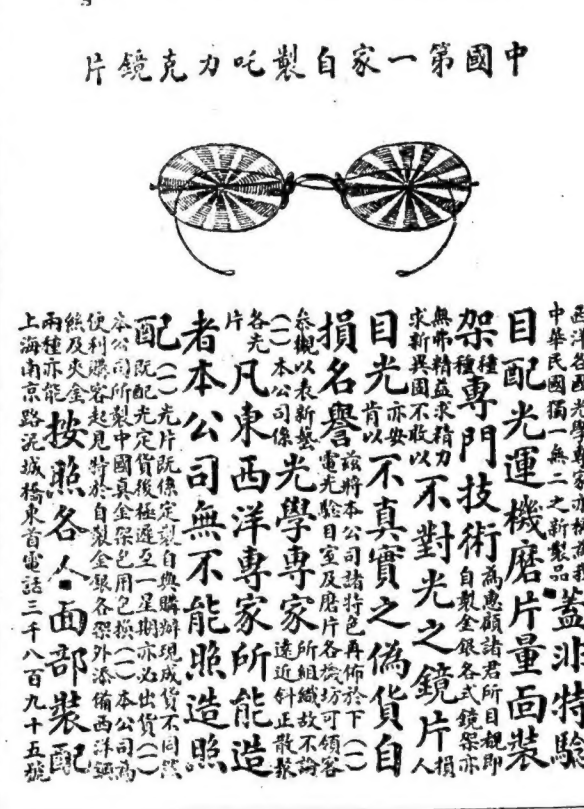 中國第一家自製吒力克鏡片
西洋各國光學專家亦稱為我
中華民國獨一無二之新製品
蓋非特驗
目配光運機磨片量面裝
架種種專門技術
為惠顧諸君所目覩即
自製金銀各式鏡架亦
無弗精益求精力
求新異固不敢以
不對光之鏡片損人
目光亦安肯以不真實之偽貨自
損名譽
茲將本公司諸特色再佈於下(一)
電光驗目室及磨片各機坊可領客
參觀以表新藝
(一)本公司係
光學專家
所組織故不論
遠近斜正散聚
各光片凡東西洋專家所能造
者本公司無不能照造照
配
(一)光片既係定製自與購辦現成貨不同然
既配光定貨後極遲至一星期亦必出貨(一)
本公司所製中國真金架包用包換(一)本公司為
便利購客起見特於自製金銀各架外添備西洋
絲及夾金
兩種亦能
按照各人面部裝配
上海南京路泥城橋東首電話三千八百九十五號